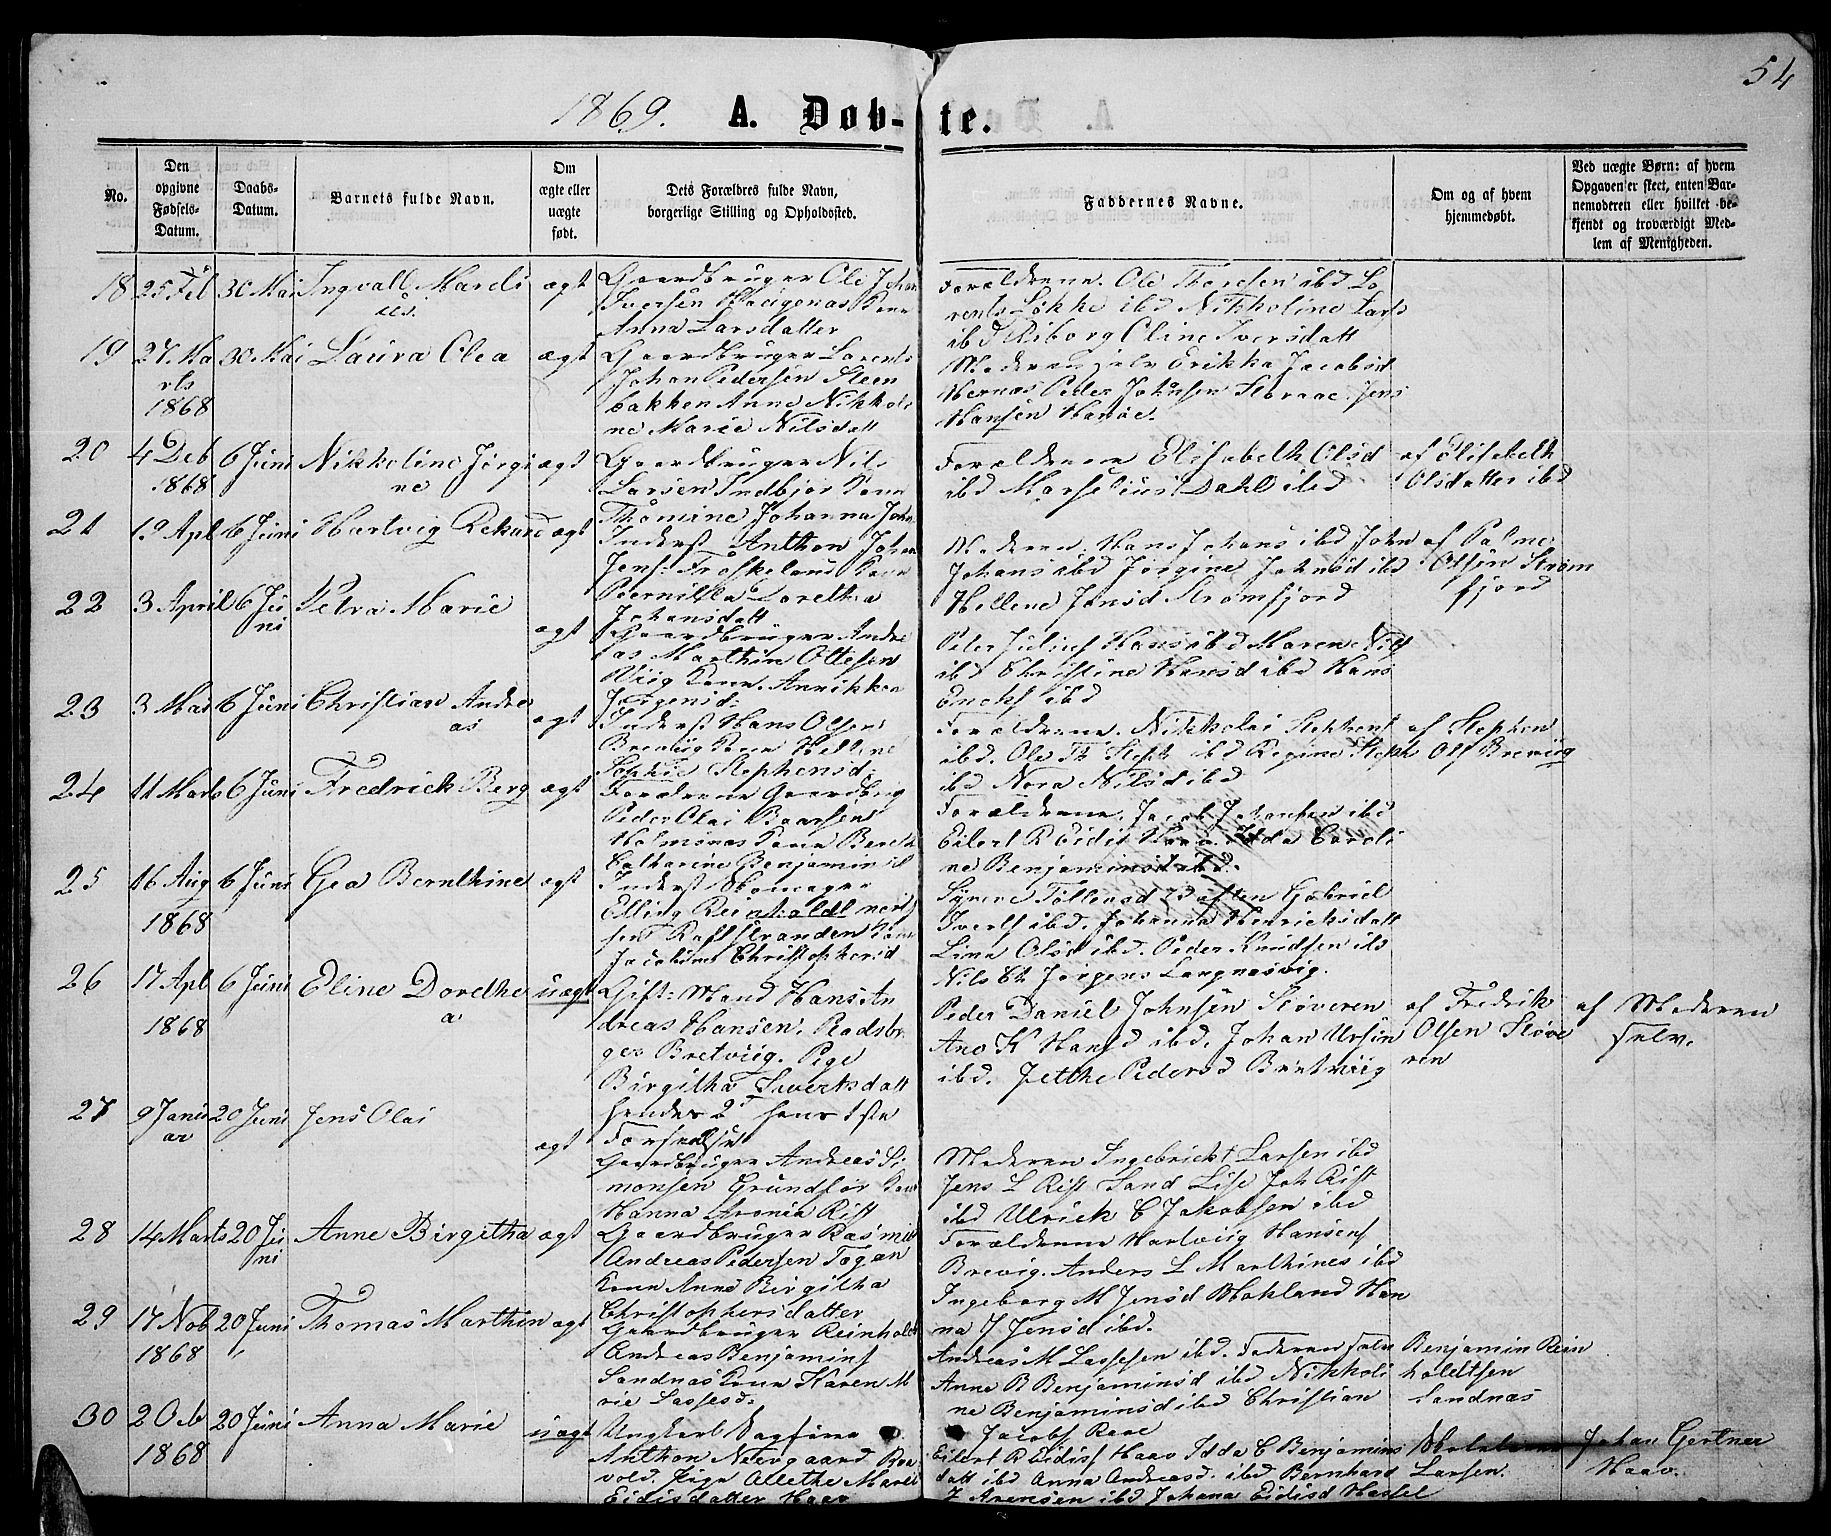 54
1869. A. Døb- te.
No.
Den opgivne Fødsels-Datum.
Daabs-Datum.
Barnets fulde Navn.
Om ægte eller uægte født.
Dets Forældres fulde Navn, borgerlige Stilling og Opholdssted.
Faddernes Navne.
Om og af hvem hjemmedøbt.
Ved uægte Børn: af hvem Opgaven er skeet, enten Barnemoderen eller hvilket bekjendt og troværdigt Medlem af Menigheden.
18 25 Feb 30 Mai Ingvall Mareli
us. ægt
Gaardbruger Ole Johan
Iversen Haugenas Kone
Anna Larsdatter
Forældrene. Ole Thoresen ibd Lo
rents Løkke ibd Nikkoline Lars
ibd Riborg Eline Iversdatt
19 27 Ma 30 Mai Laura Olea ægt
rts
1868
Gaardbruger Lorents
Johan Pedersen Steen
bakken Anne Nikkoli
ne Marie Nilsdatt
Moderen selv Erikka Jacobsd
Hernæs Peder Johnsen Jens
Hansen
20 4 Deb 6 Juni Nikkoline Jørgi ægt
1868 ne
Gaardbruger Nils
Larsen Indbjor Kone
Thomine Johanna John
Forældrene Elisabeth Olsd
ibd Marselius Dahl ibd
af Elisabeth
Olsdatter ibd
21 19 Apl 6 Juni Hartvig Rekard ægt
Inderst Anthon Johan
Jens: Frøskeland Kone
Pernilla Dorethea
Johansdatt
Moderen, Hans Johans ibd John
Johans ibd Jørgine Johnsd ibd
Hellene Jensd Strømfjord
af Palme
Olsen Strøm
fjord
22 3 April 6 Ju Petra Marie
ni ægt
Gaardbruger Andre
as Marthin Ottesen
Viig Kone. Annikken
Jørgensd:
Peter Julius Hans ibd Maren Nils
ibd Christine Hansd ibd Hans
Enoks ibd
23 3 Mai 6 Juni Christian Andre
as ægt
Inderst Hans Olsen
Breviig Kone Hellene
Sophie Stephensd.
Forældrene. Nikkolai Stephens
ibd. Ole Th Steph ibd Regine Steph
ibd Nora Nilsd ibd
af Stephen
Ols Breviig
24 11 Marts 6 Juni Fredrick Berg ægt
Forældrene Gaardbrug
Peder Olai Baarsen
Holmsnæs Kone Bereth
Catharine Benjamin
Forældrene. Jacob Johansen ibd
Eilert R Eidis Haav Idda Caroli
ne Benjaminsd ibd.
25 16 Aug 6 Juni Gea Bernthine ægt
1868
Inderst Skomager
Elling Reinholdt
sen Raftstranden Kone
Jacobine Christophersd
Synere Tollevsd Gabriel
Ivers ibd. Johanna Henricksdatt
Lina Olsd ibd. Peder Knudsen ibd
Nils Et Jørgens Langnæsvig.
26 17 Apl 6 Juni Eline Dorethe uægt
1868 a
Gift: Mand Hans An
dreas Hansen.
Bretviig. Pige
Birgitha Sivertsdatt
hendes 2d hans 1ste
Forseelse
Peder Daniel Johnsen Støveren
Ane K Hansd ibd. Johan Ursin
ibd. Jetthe Pedersd Bretviig
af Fredrik
Olsen Støve
ren
af Moderen
selv.
27 9 Janu 20 Juni Jens Olai
ar ægt
Gaardbruger Andreas Si
monsen Grundfør Kone
Hanna Aronia Rist
Moderen Ingebrickt Larsen ibd
Jens L Rist Sand Lise Joh Rist
ibd Ulrick C Jakobsen ibd
28 14 Marts 20 Ju Anne Birgitha ægt
ni
Gaardbruger Rasmus
Andreas Pedersen Togan
Kone Anne Birgitha
Christophersdatter
Forældrene Hartviig Hansens
Brevig. Anders L Marthines ibd
Ingeborg M Jensd Møkland Han
na J Jensd ibd.
29 17 Nob 20 Juni Thomas Marthin ægt
1868 "
Gaardbruger Reinholdt
Andreas Benjamins
Sandnæs Kone Karen M
rie Lassesd:
Andreas M Lassesen ibd. Faderen selv
Anne B Benjaminsd ibd Nikkoli
ne Benjaminsd ibd Christian
Jacobs
Benjamin Rein
holdtsen
Sandnæs
30 2 Ocb 20 Juni Anna Marie uægt
1868
Ungkarl Sagfører
Anthon Neergaard
vold. Pige Allethe Mareli
Eidisdatter Haav
Eilert R Eidis Haav Idda C Benjamins
datt ibd Anna Andreasd. ibd Bernhard
Z Arensen ibd Johana Eidisd Hassel
Larsen.
Johan Gertner
Haav.